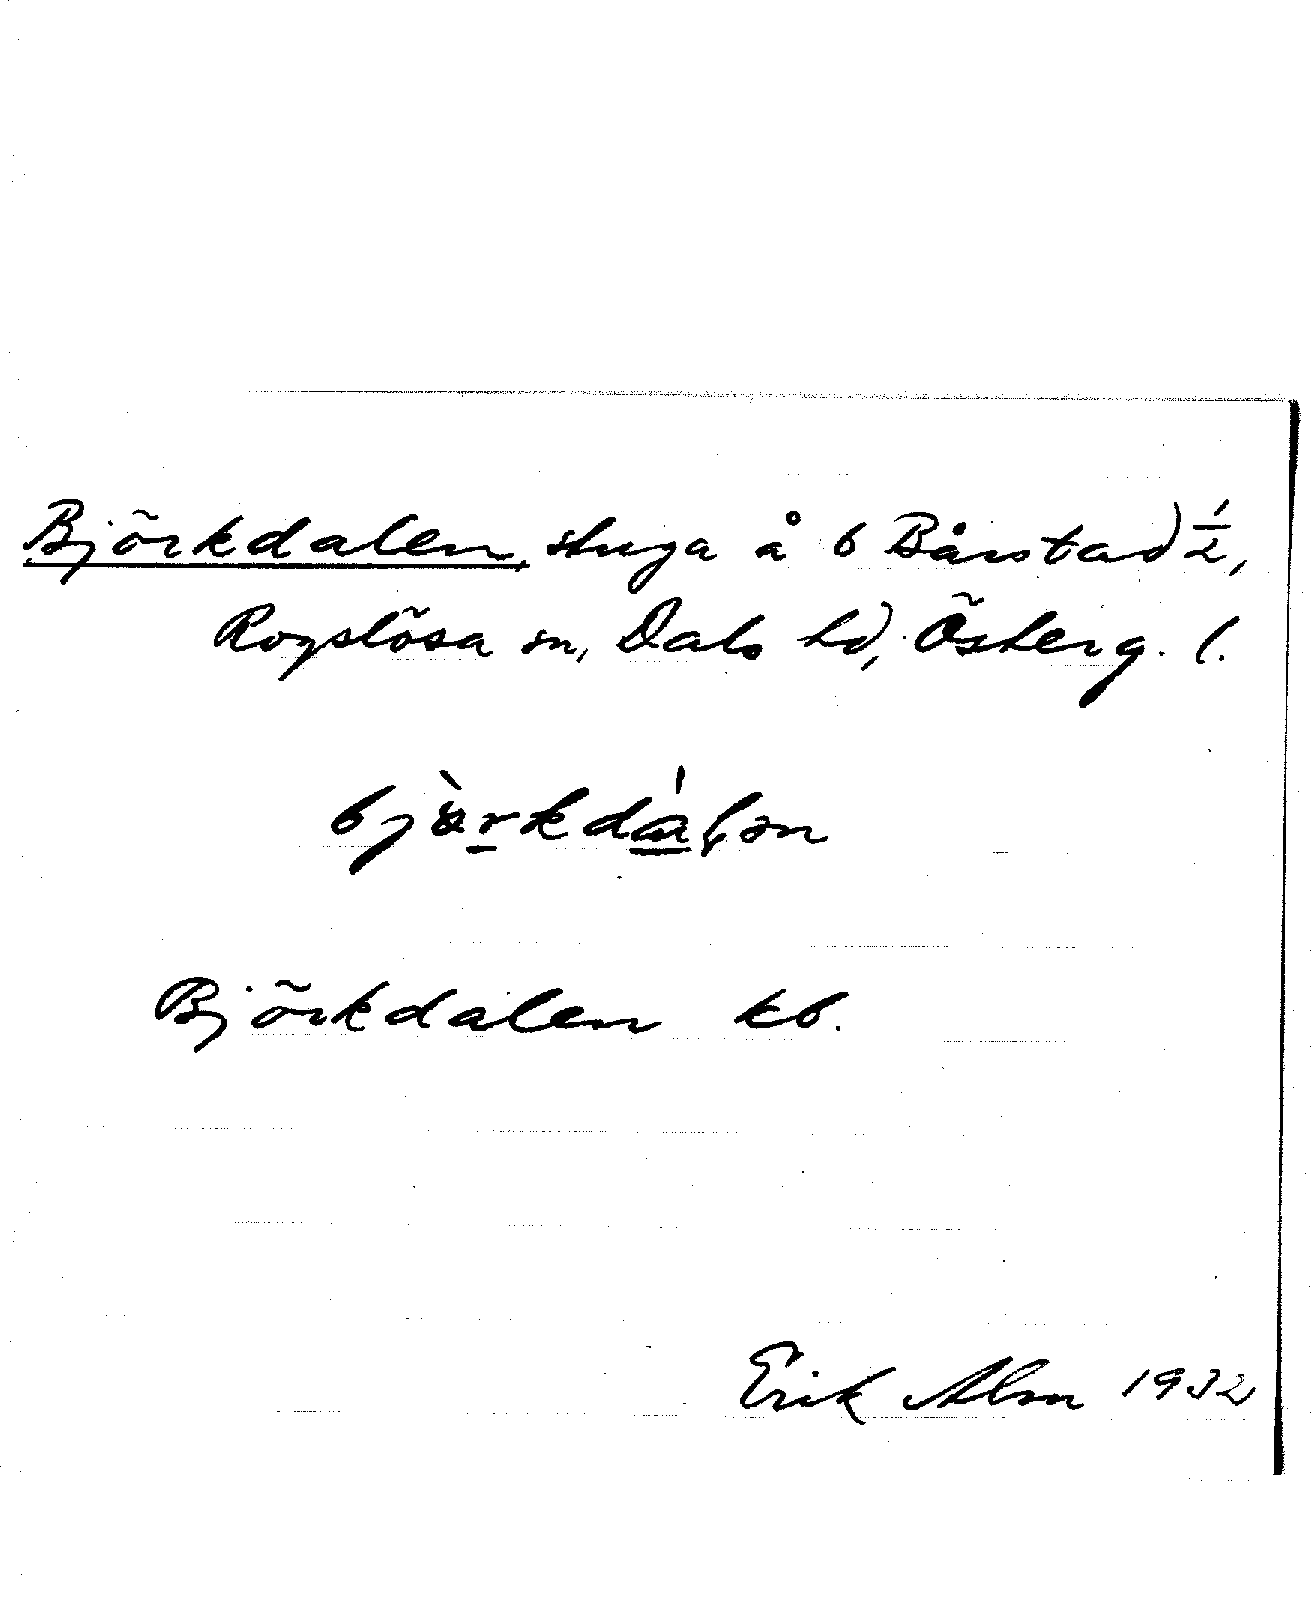 Björkdalen, stuga å 6 Bårstad 1/2,
Rogslösa sn, Dals hd, Österg. l.
Björkdalen kb.
Erik Alm 1932